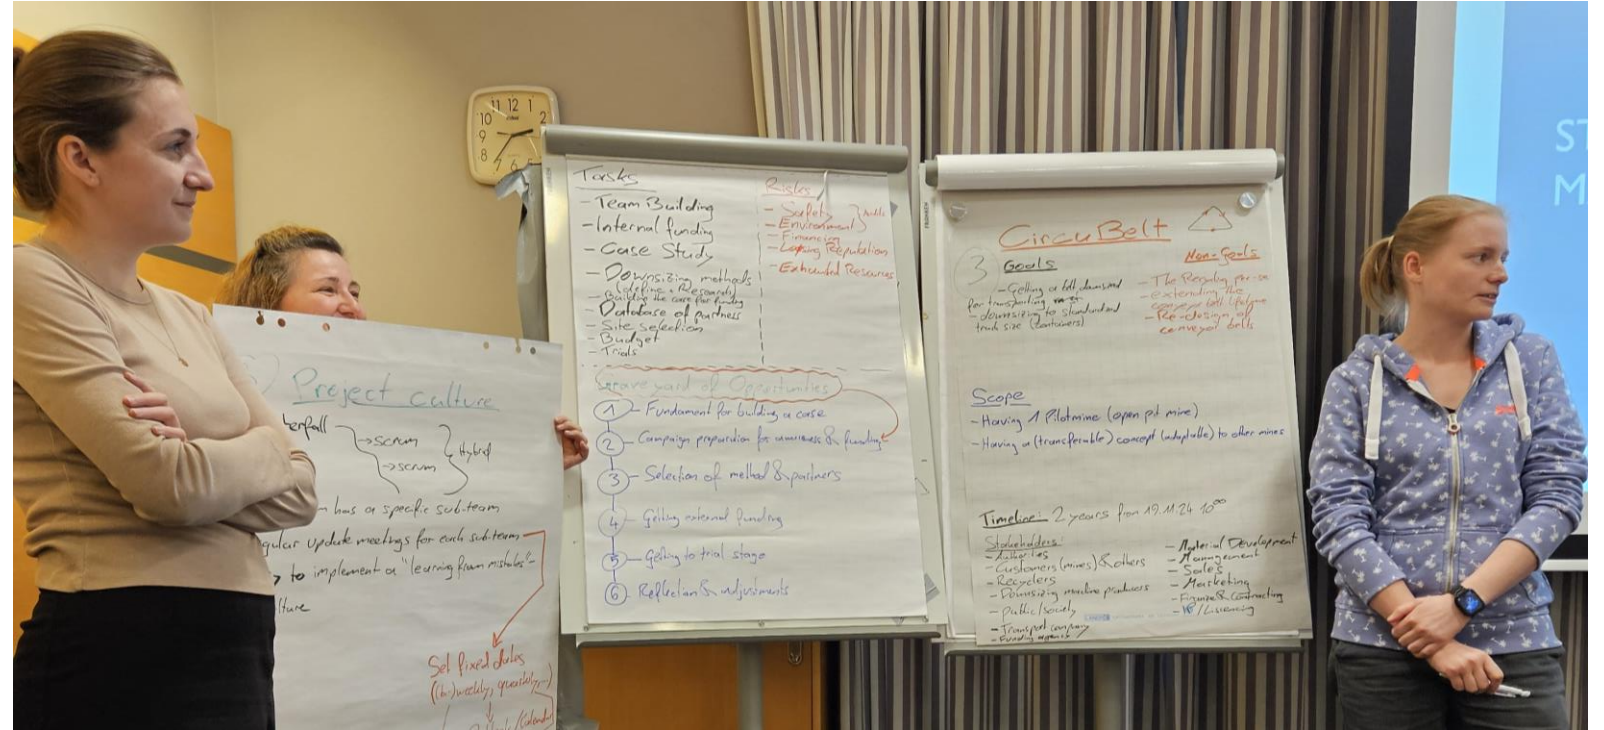 11 12 1
10 2
9
8
7 6
Project culture
erfall
→ scrum
→ scrum
Hybrid
has a specific sub-team
gular update meetings for each sub-team
to implement a "learning from mistakes"-
lture
Set fixed dates
((bi-)weekly, quarterly, ...)
/Calendar
Tasks
- Team Building
- Internal funding
- Case Study
- Downsizing methods
(define + Research)
- Building the case for funding
- Database of partners
- Site selection
- Budget
- Trials
Risks
- Safety
- Environment
- Financing
- Losing Reputation
- Exhausted Resources
Graveyard of Oportunities
1 - Fundament for building a case
2 - Campaign preparation for awareness & funding
3 - Selection of method & partners
4 - Getting external funding
5 - Getting to trial stage
6 - Reflection & adjustments
CircuBelt
3
Goals
- Getting a belt downsized
for transporting
- downsizing to standardized
truck size (containers)
Non-Goals
- The Recycling per-se
- extending the
conveyor belt lifetime
- Re-design of
conveyor belts
Scope
- Having 1 Pilotmine (open pit mine)
- Having a (transferable) concept (adaptable) to other mines
Timeline: 2 years from 19.11.24 10:00
Stakeholders:
- Authorities
- Customers (mines) & others
- Recyclers
- Downsizing machine producers
- public/society
- Transport company
- Funding agency
- Material Development
- Management
- Sales
- Marketing
- Finance & Contracting
- IP/Liscencing
ST
M